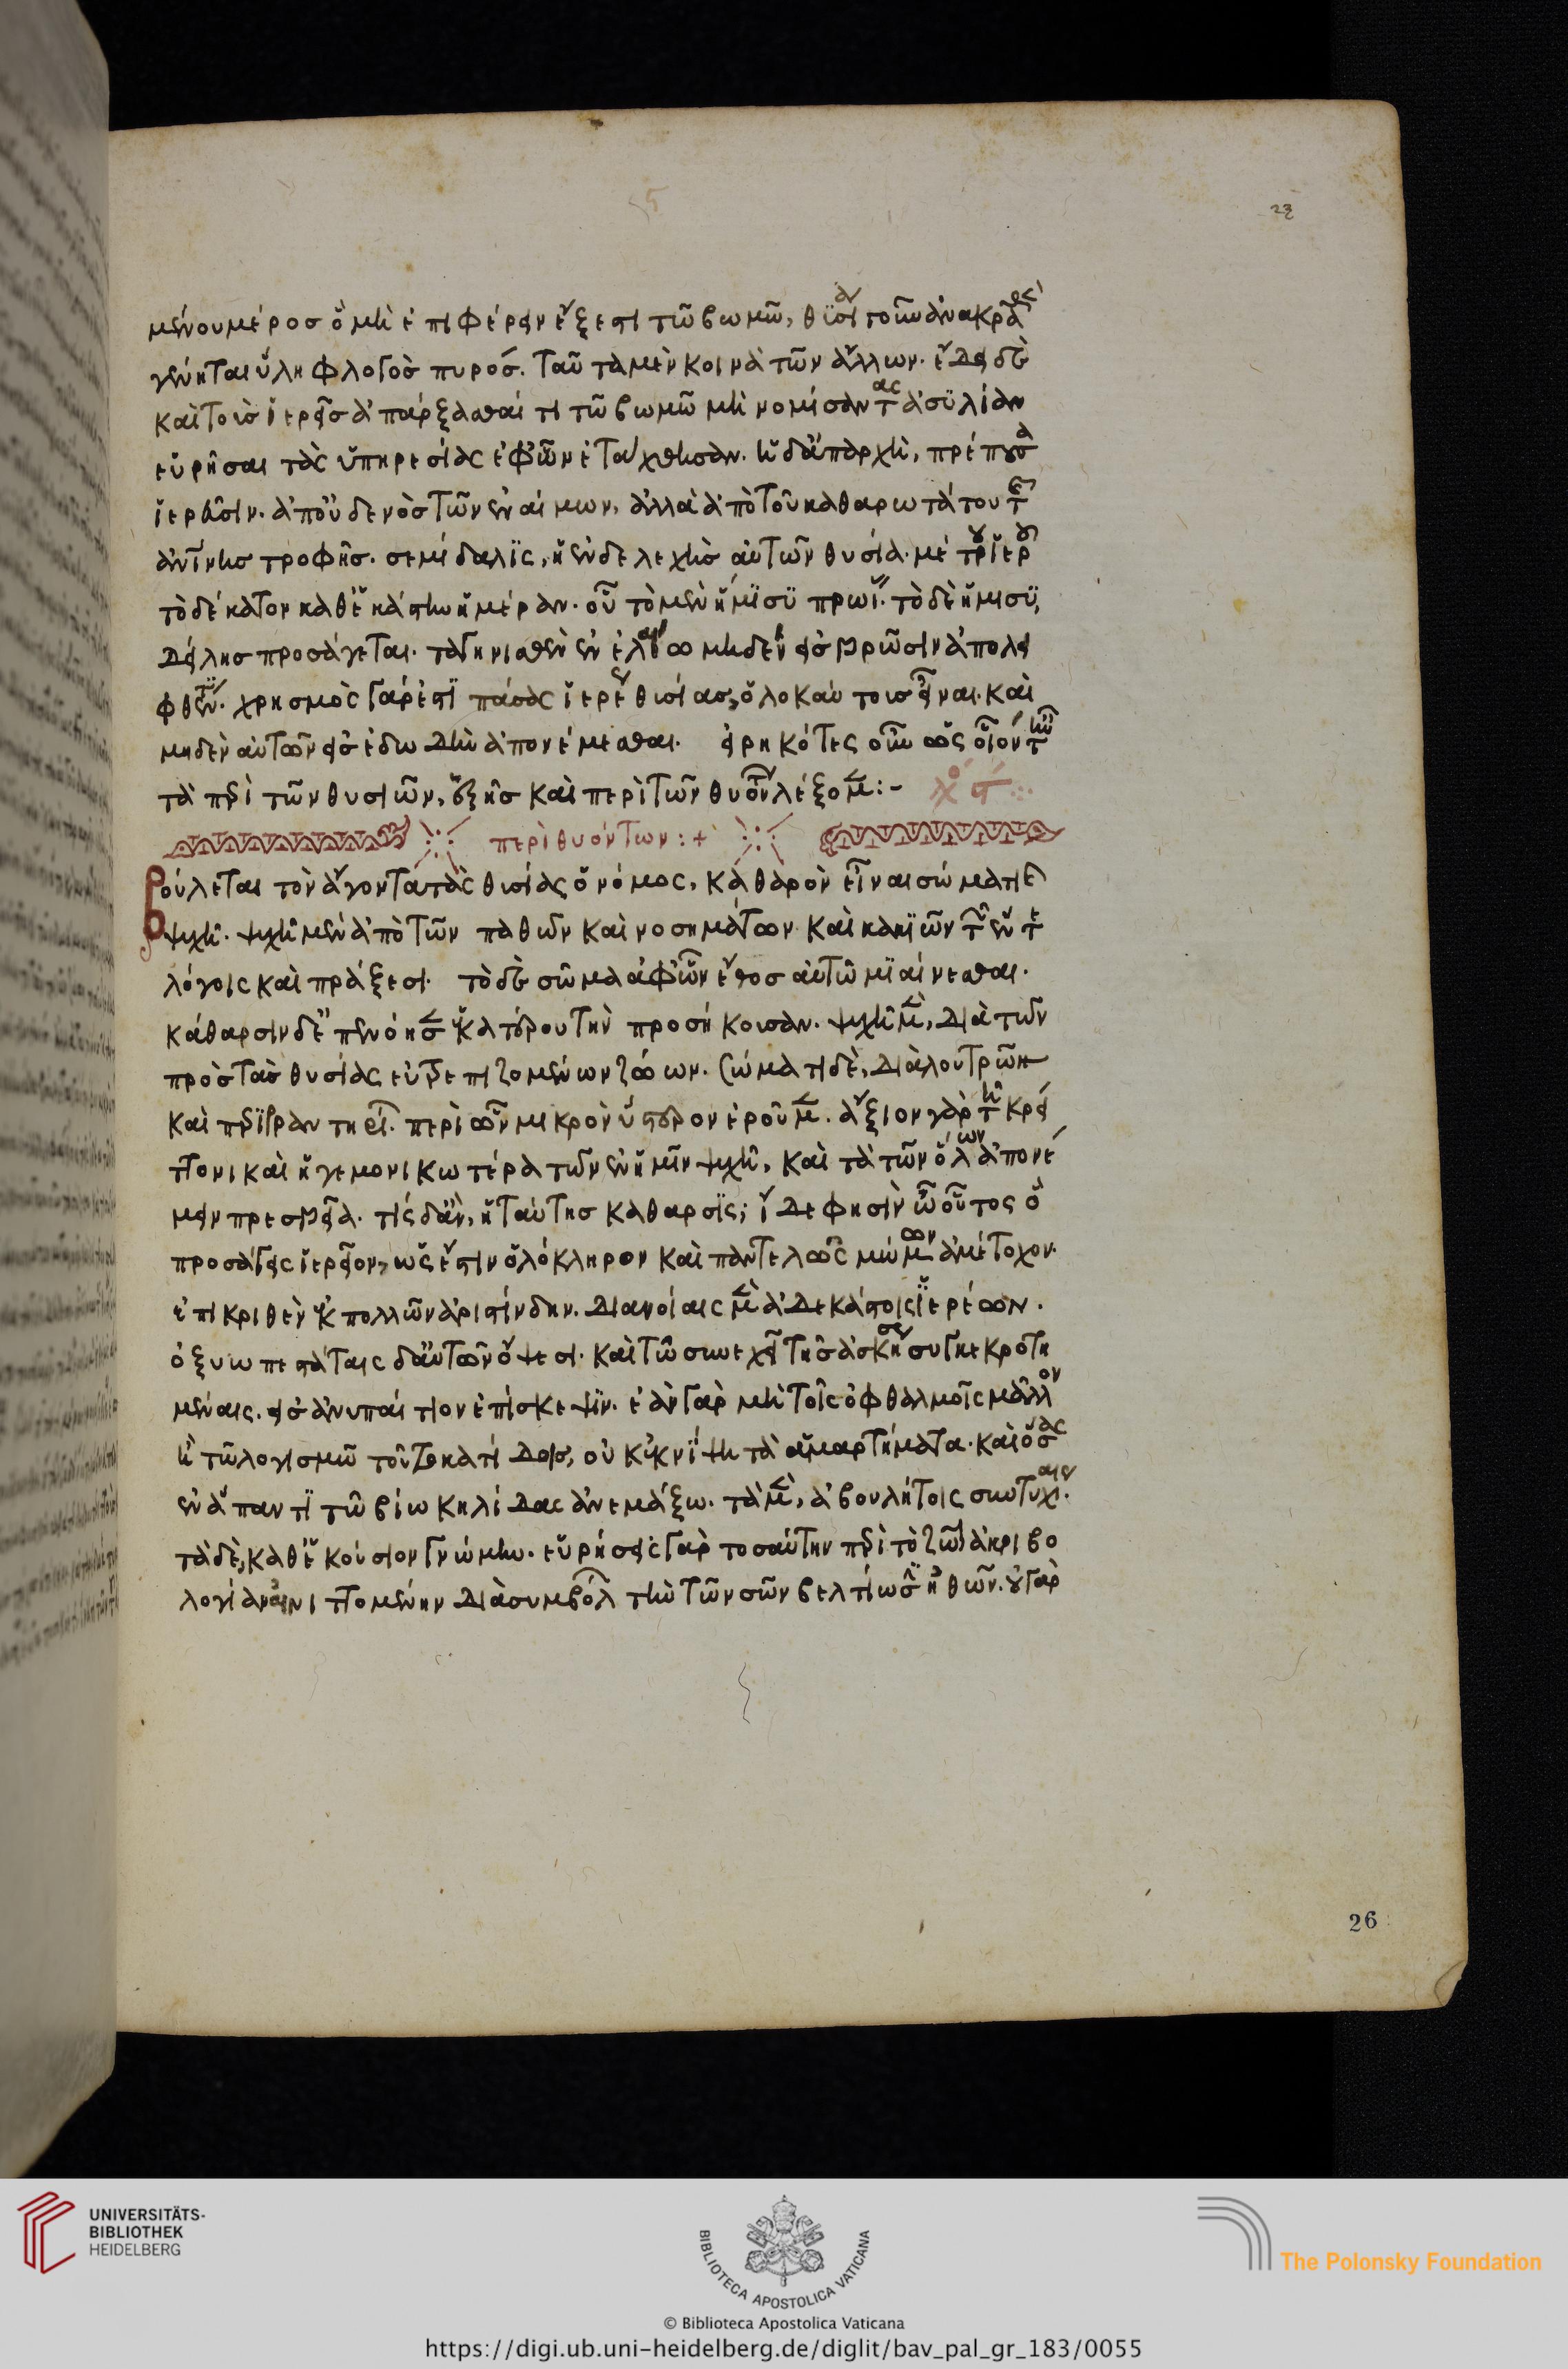 μένου μέρος ὃ μὴ ἐπιφέρειν ἔξεστι τῶ βωμῶ, θυσίαν τοίνυν ἀνακραθεὶς
γένηται ὕλη φλογὸς πυρός. ταῦτα μὲν κοινὰ τῶν ἄλλων. ἔδει δὲ
καὶ τοὺς ἱερεῖς ἀπάρξασθαί τι τῶ βωμῶ μὴ νομίσαντας ἀσυλίαν
εὑρῆσαι τὰς ὑπηρεσίας ἐφ' ὧν ἐτάχθησαν. ἡ δ' ἀπαρχὴ, πρέπουσα
ἱερεῦσιν. ἀπ' οὐδενὸς τῶν ἐναίμων, ἀλλὰ ἀπὸ τοῦ καθαρωτάτου τῆς
ἀνίνης τροφῆς. σεμίδαλις, ἡ ἐνδελεχὴς αὐτῶν θυσία. μέτρου ἱεροῦ
τὸ δέκατον καθ' ἑκάστην ἡμέραν. οὗ τὸ μὲν ἥμισυ πρωί. τὸ δὲ ἥμισυ,
δείλης προσάγεται. ταγηνισθὲν ἐν ἐλαίω ὡς μηδὲν εἰς βρῶσιν ἀπολει
φθῆναι. χρησμὸς γάρ ἐστι πάσας ἱερέων θυσίας, ὁλοκαύτους εἶναι. καὶ
μηδὲν αὐτῶν εἰς ἐδωδὴν ἀπονέμεσθαι. εἰρηκότες οὖν ὡς οἷόν τε ἦν
τὰ περὶ τῶν θυσιῶν, ἑξῆς καὶ περὶ τῶν θυόντων λέξομεν:-
περὶ θυόντων:+
Βούλεται τὸν ἄγοντα τὰς θυσίας ὁ νόμος, καθαρὸν εἶναι σώματι καὶ
ψυχῆ. ψυχῆ μὲν ἀπὸ τῶν παθῶν καὶ νοσημάτων καὶ κακιῶν τῶν ἔν τε
λόγοις καὶ πράξεσι. τὸ δὲ σῶμα ἀφ' ὧν ἔθος αὐτῶ μιαίνεσθαι.
κάθαρσιν δ' ἐπενόησεν ἑκατέρου τὴν προσήκουσαν. ψυχῆ μὲν, διὰ τῶν
πρὸς τὰς θυσίας εὐτρεπιζομένων ζώων. σώματι δὲ, διὰ λουτρῶν
καὶ περιρραντηρίων. περὶ ὧν μικρὸν ὕστερον ἐροῦμεν. ἄξιον γὰρ τῆ κρεί
ττονι καὶ ἡγεμονικωτέρα τῶν ἐν ἡμῖν ψυχῆ, καὶ τὰ τῶν ὅλων ἀπονέ
μειν πρεσβεῖα. τίς δ' ἂν, ἡ ταύτης κάθαρσις; ἴδε φησὶν ὦ οὗτος ὃ
προσάγεις ἱερεῖον, ὡς ἔστιν ὁλόκληρον καὶ παντελῶς μώμων ἀμέτοχον.
ἐπικριθὲν ἐκ πολλῶν ἀριστίνδην. διανοίαις μὲν ἀδεκάστοις ἱερέων.
ὀξυωπεστάταις δ' αὐτῶν ὄψεσι. καὶ τῶ συνεχεῖ τῆς ἀσκήσεως συγκεκροτη
μέναις. εἰς ἀνυπαίτιον ἐπίσκεψιν. ἐὰν γὰρ μὴ τοῖς ὀφθαλμοῖς μᾶλλον
ἢ τῶ λογισμῶ τοῦτο κατίδοις, οὐκ ἐκνίψη τὰ ἁμαρτήματα. καὶ ὅσας
ἐν ἅπαντι τῶ βίω κηλίδας ἀνεμάξω. τὰ μὲν, ἀβουλήτοις συντυχίαις.
τὰ δὲ, καθ' ἑκούσιον γνώμην. εὑρήσεις γὰρ τοσαύτην περὶ τὸ ζῶον ἀκριβο
λογίαν αἰνιττομένην διὰ συμβόλων τὴν τῶν σῶν βελτίωσιν ἠθῶν. οὐ γὰρ
26
UNIVERSITÄTS-
BIBLIOTHEK
HEIDELBERG
BIBLIOTECA APOSTOLICA VATICANA
The Polonsky Foundation
© Biblioteca Apostolica Vaticana
https://digi.ub.uni-heidelberg.de/diglit/bav_pal_gr_183/0055